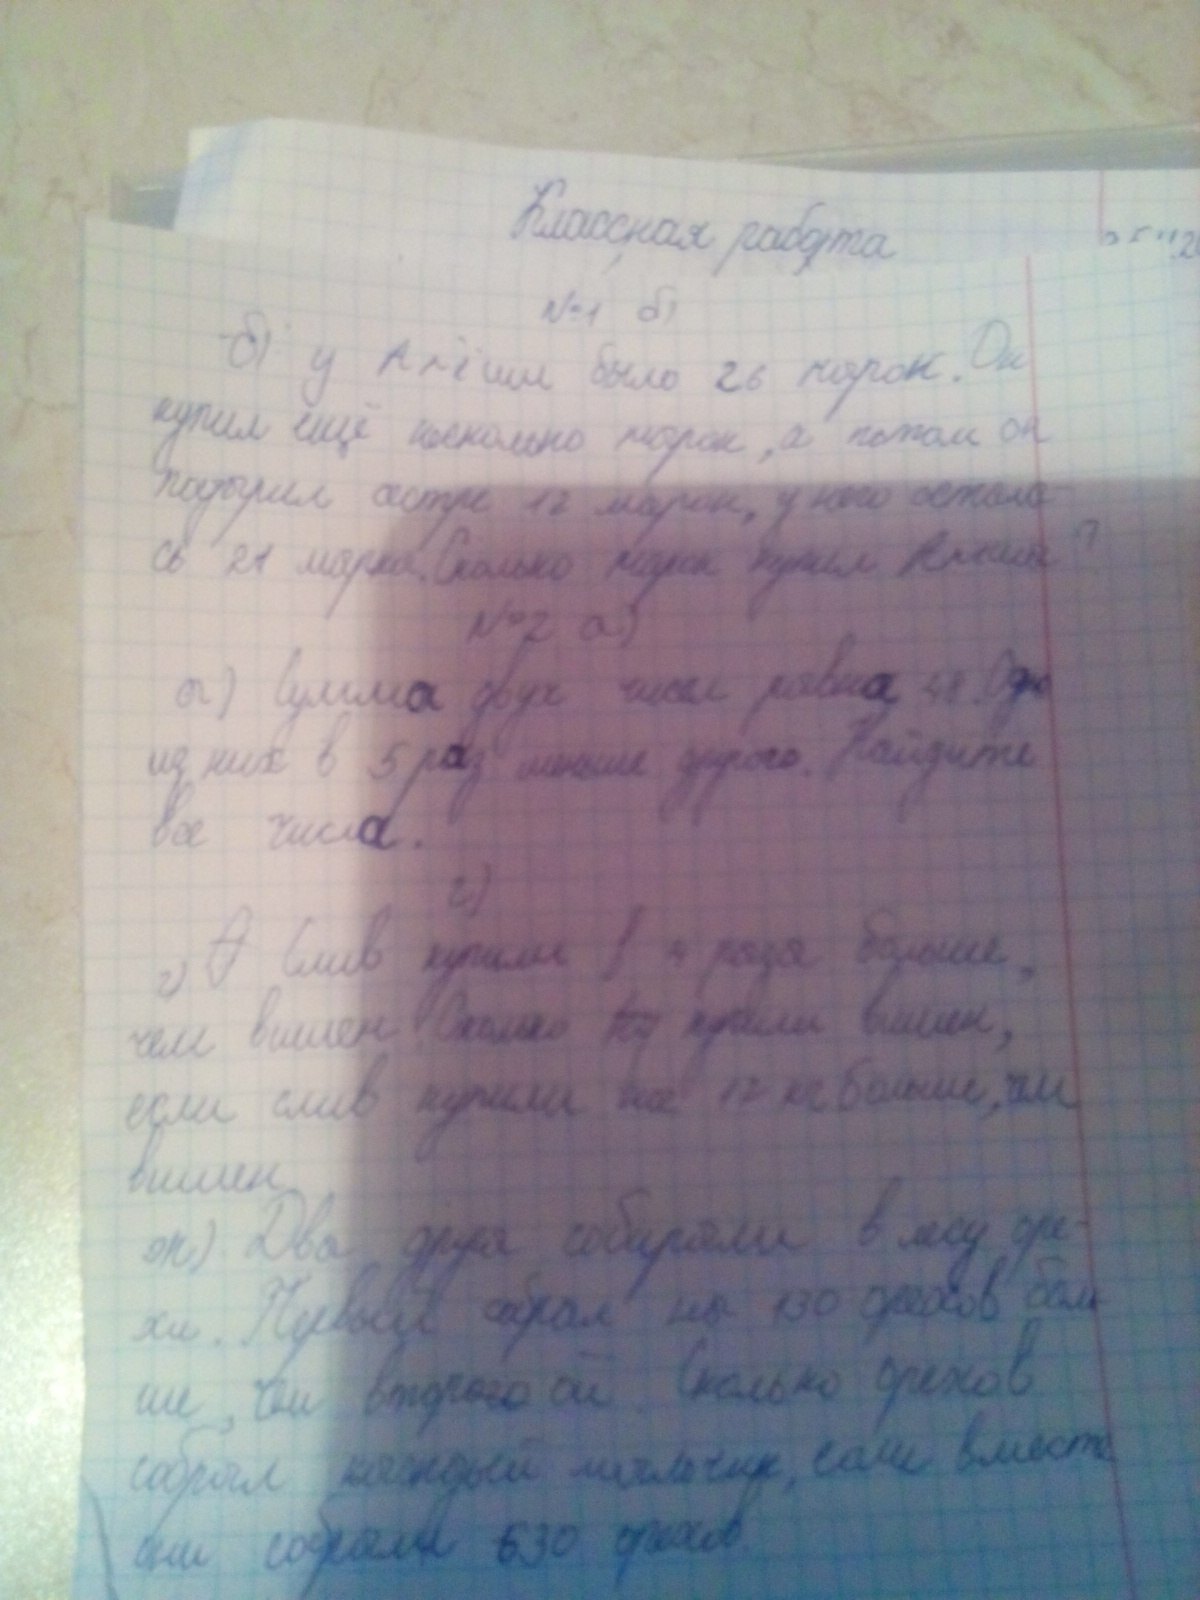 Классная работа
№1 б)
б) У Алёши было 26 марок. Он
купил ещё несколько марок, а потом он
подарил сестре 12 марок, у него остала-
сь 21 марка. Сколько марок купил Алёша?
№2 а)
а) Сумма двух чисел равна 48. Одно
из них в 5 раз меньше другого. Найдите
все числа.
г)
г) Слив купили в 4 раза больше,
чем вишен. Сколько кг купили вишен,
если слив купили на 12 кг больше, чем
вишен
ж) Два друга собирали в лесу оре-
хи. Первый собрал на 130 орехов боль
ше, чем второй. Сколько орехов
собрал каждый мальчик, если вместе
они собрали 630 орехов.